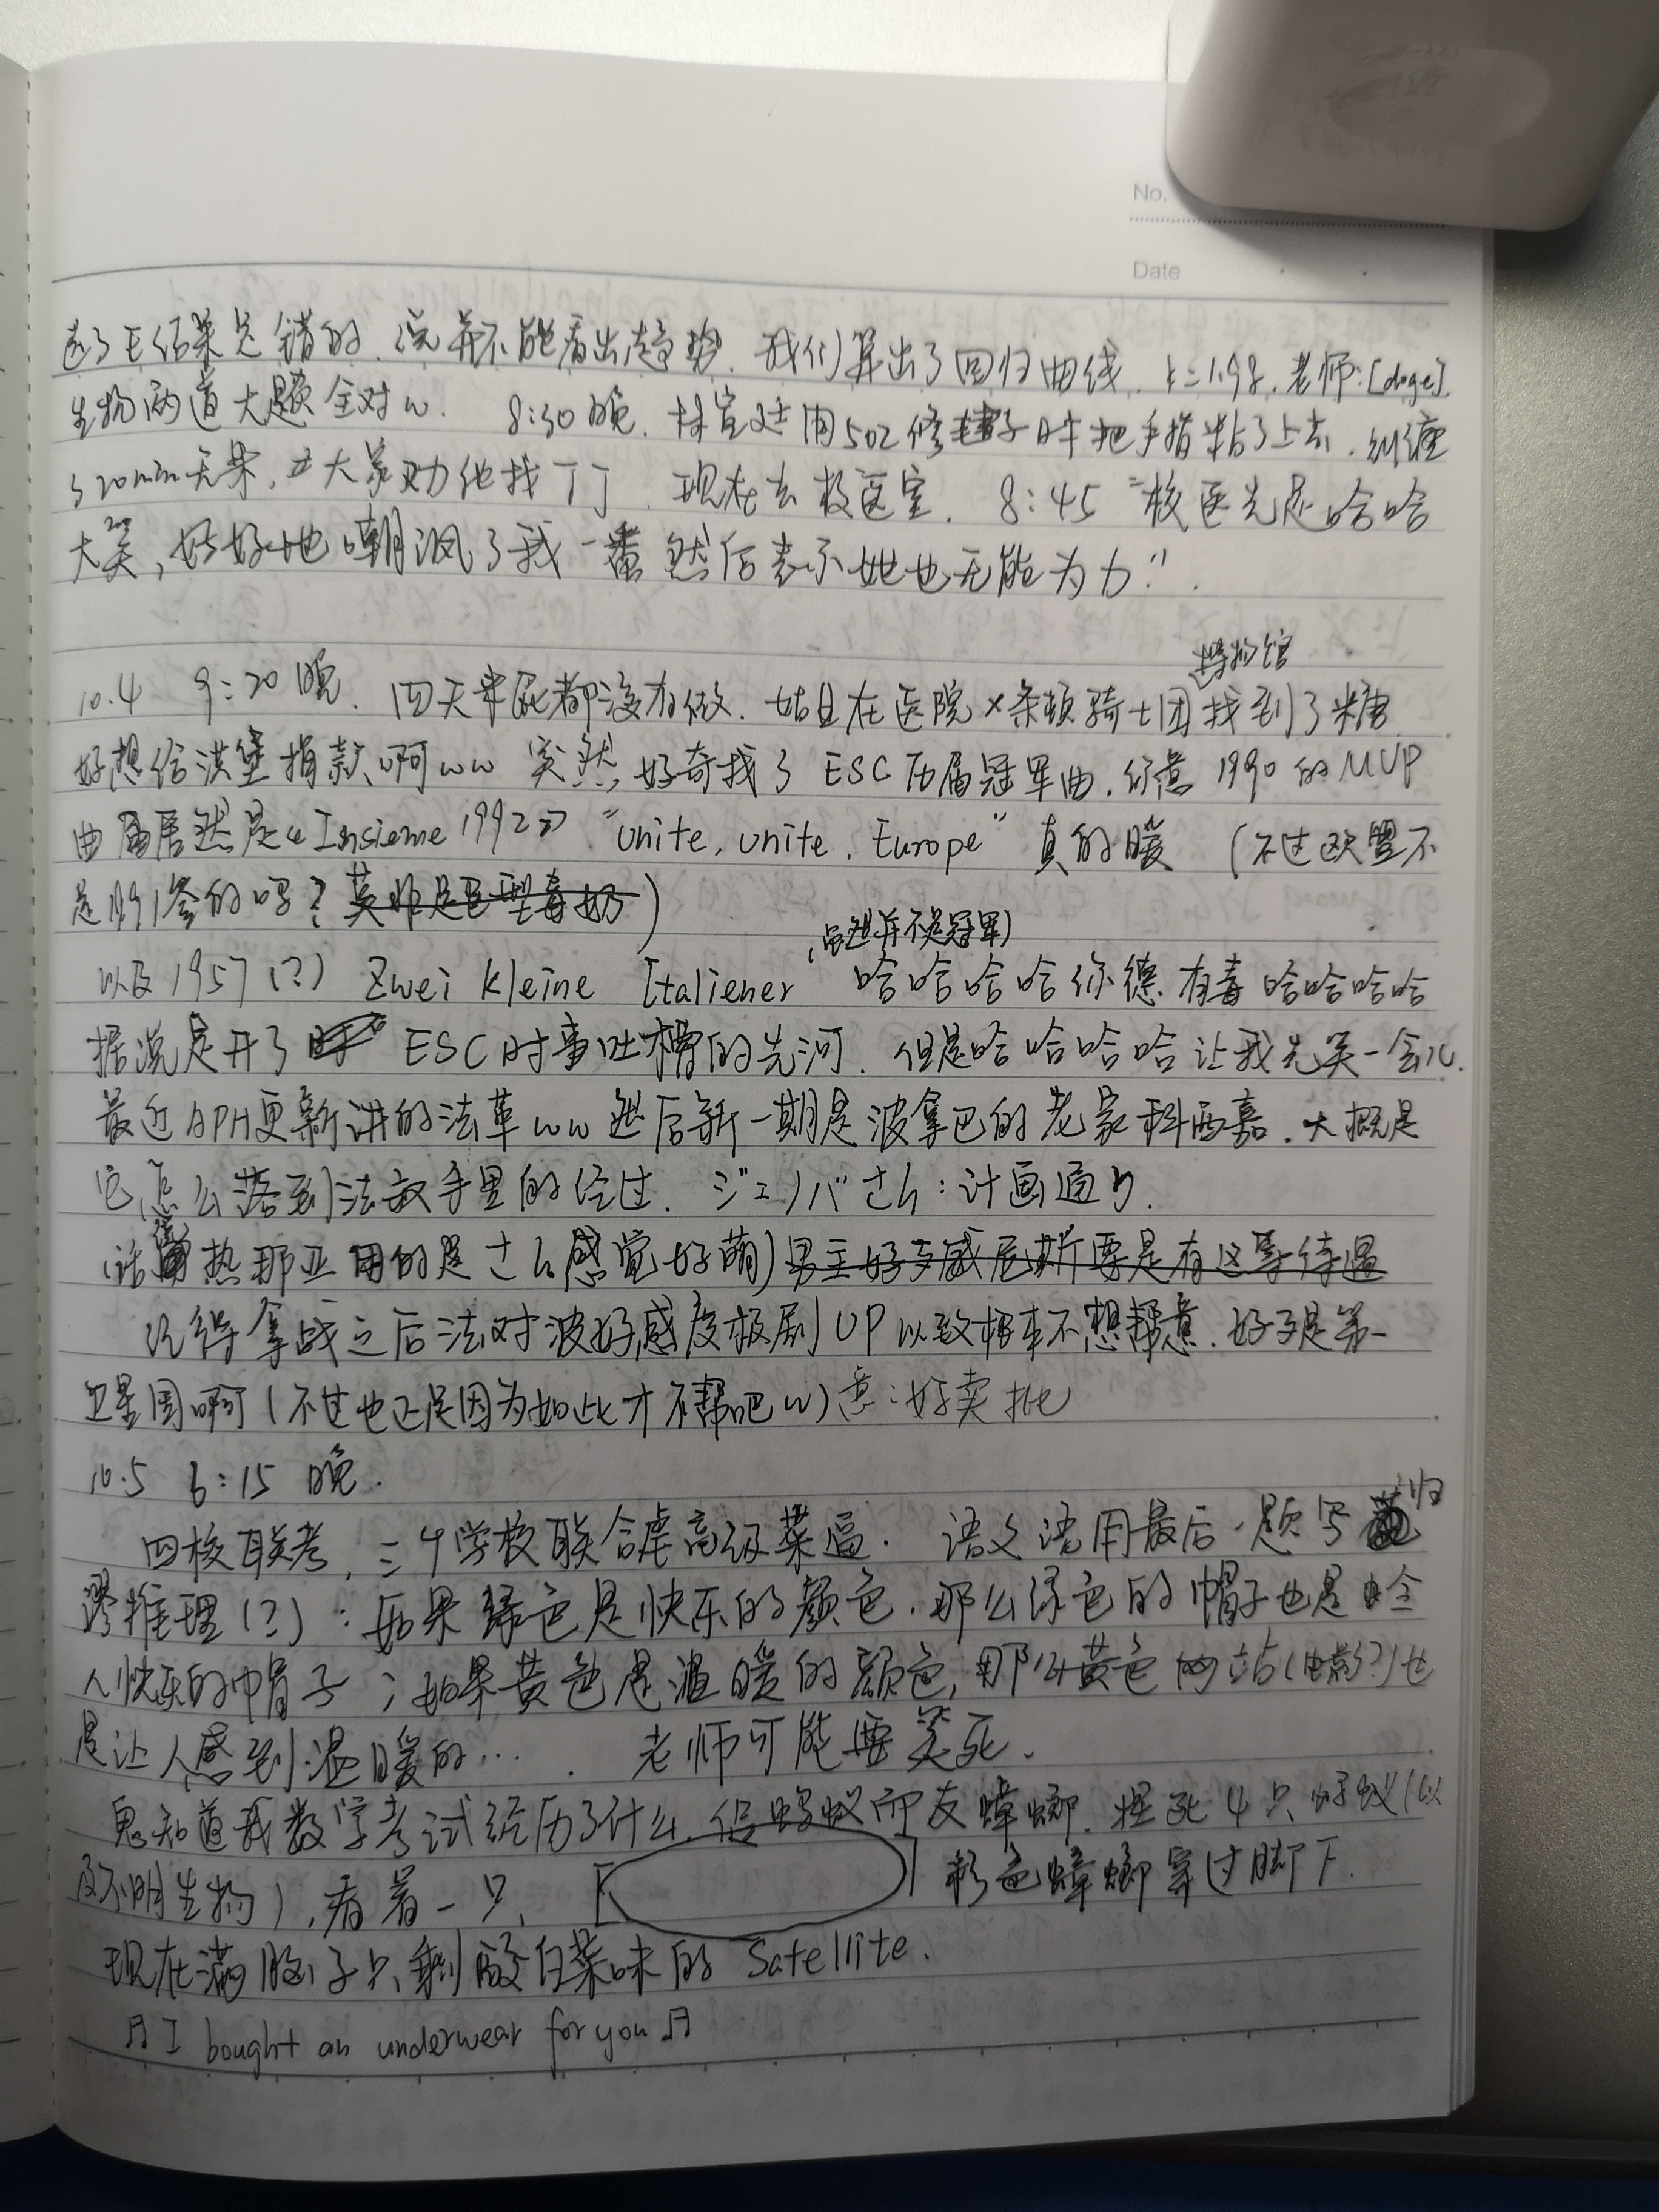 No.
Date
了 结果是错的, 说并不能看出趋势. 我们算出了回归曲线. 老师:[doge].
生物两道大题全对w. 8:30晚. 用502修 子时把手指粘了上去, 纠缠
了20min无果, 大家劝他找丁丁 现在去校医室. 8:45 “校医先是哈哈
大笑, 好好地嘲讽了我一番 然后表示她也无能为力”.
博物馆
10.4 9:20 晚. 四天来屁都没有做. 姑且在医院×条顿骑士团找到了糖
好想给洪堡捐款啊ww 突然好奇找了 ESC历届冠军曲. 你意 1990 的MVP
曲 居然是《Insieme 1992》 “Unite, unite, Europe” 真的暖 (不过欧盟不
是1991签的吗? 莫非是巨型毒奶)
(虽然并不是冠军)
以及1957(?) Zwei kleine Italiener 哈哈哈哈你德有毒哈哈哈哈
据说是开了 ESC时事吐槽的先河. 但是哈哈哈哈让我先笑一会儿.
最近APH更新讲的法革ww 然后新一期是波拿巴的老家科西嘉. 大概是
它怎么落到法叔手里的经过. ジェノバさん:计画通り.
(话说热那亚用的是さん感觉好萌) 男主好多威尼斯要是有这等待遇
总觉得拿战之后法对波好感度极剧UP以致根本不想帮意. 好歹是第一
卫星国啊 (不过也正是因为如此才不帮吧w) 意:好卖批
10.5 6:15 晚.
四校联考, 三个学校联合虐高级菜逼. 语文语用最后一题写 归
谬推理(?): 如果绿色是快乐的颜色, 那么绿色的帽子也是令
人快乐的帽子; 如果黄色是温暖的颜色, 那么黄色网站(电影?)也
是让人感到温暖的... 老师可能要笑死.
鬼知道我数学考试经历了什么. 侣蚂蚁而友蟑螂. 捏死4只蚂蚁(以
及不明生物), 看着一只, [ ] 彩色蟑螂穿过脚下.
现在满脑子只剩酸白菜味的 Satellite.
♫ I bought an underwear for you ♫